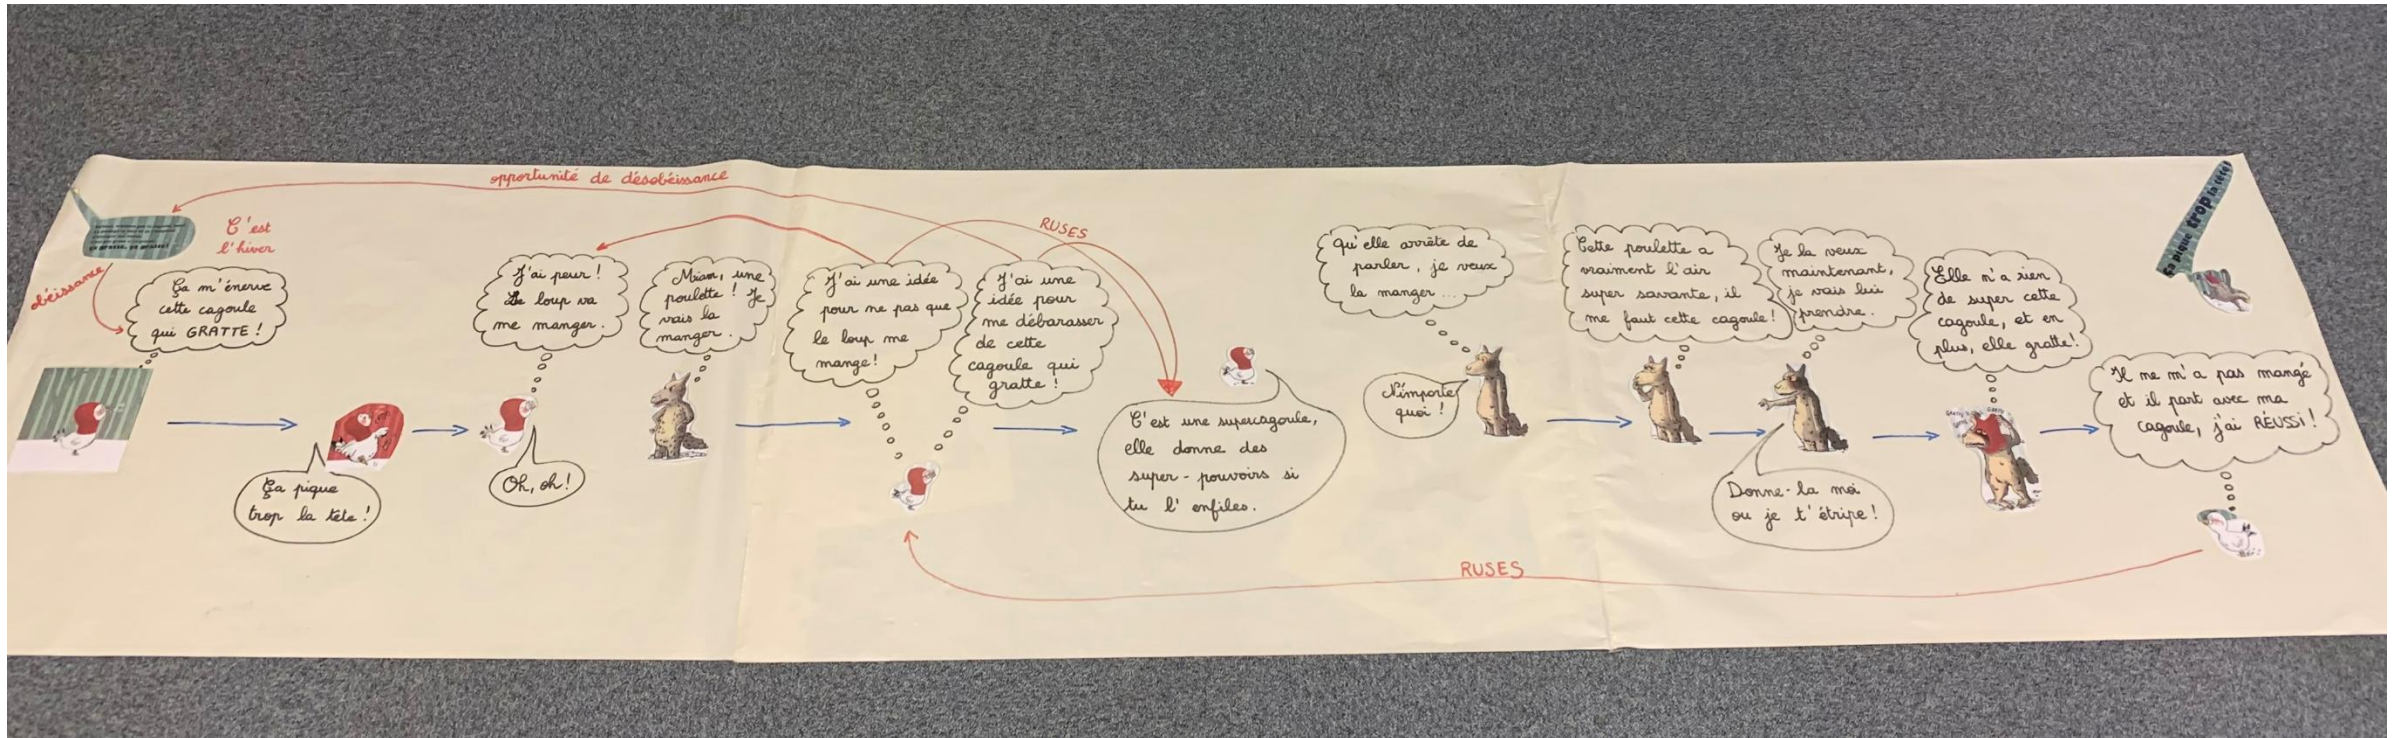 opportunité de désobéissance
ça gratte, ça gratte!
C'est
l'hiver
obéissance
Ça m'énerve
cette cagoule
qui GRATTE !
Ça pique
trop la tête !
J'ai peur !
Le loup va
me manger.
Oh, oh !
Miam, une
poulette ! Je
vais la
manger.
J'ai une idée
pour ne pas que
le loup me
mange !
J'ai une
idée pour
me débarasser
de cette
cagoule qui
gratte !
RUSES
C'est une supercagoule,
elle donne des
super-pouvoirs si
tu l'enfiles.
Qu'elle arrête de
parler, je veux
la manger...
N'importe
quoi !
Cette poulette a
vraiment l'air
super savante, il
me faut cette cagoule !
Je la veux
maintenant,
je vais lui
prendre.
Donne-la moi
ou je t'étripe !
Elle n'a rien
de super cette
cagoule, et en
plus, elle gratte !
Ça pique trop la tête!
Il ne m'a pas mangé
et il part avec ma
cagoule, j'ai RÉUSSI !
RUSES